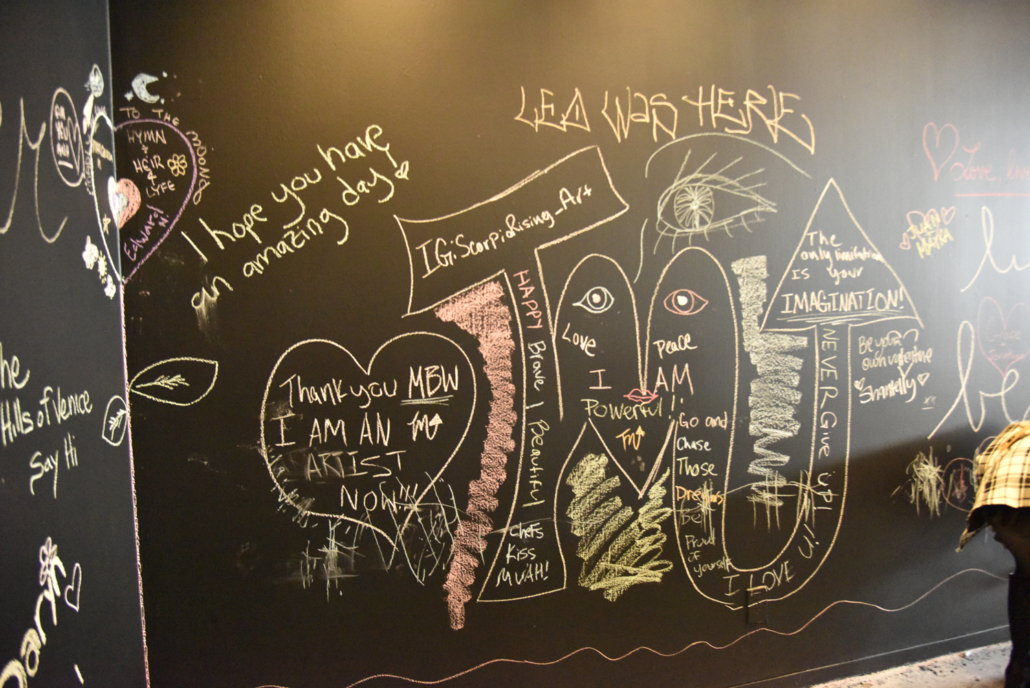 TO THE MOON
HYMN
+
HEIR
+
LYFE
Edward
N!
The
Hills of Venice
Say Hi
I hope you have
an amazing day!
LEA WAS HERE
IG: ScorpioRising_Art
Thank you MBW
I AM AN
ARTIST
NOW!!!
HAPPY Brave I Beautiful
Chefs
Kiss
MUAH!
Love
I
Powerful!!
Peace
AM
Go and
Chase
Those
Dreams
Be
Proud
of yourself
The
only limitation
IS your
IMAGINATION!
NEVER GIVE UP!
I LOVE
in
Be your
own valentine
Shantelly
Love
be